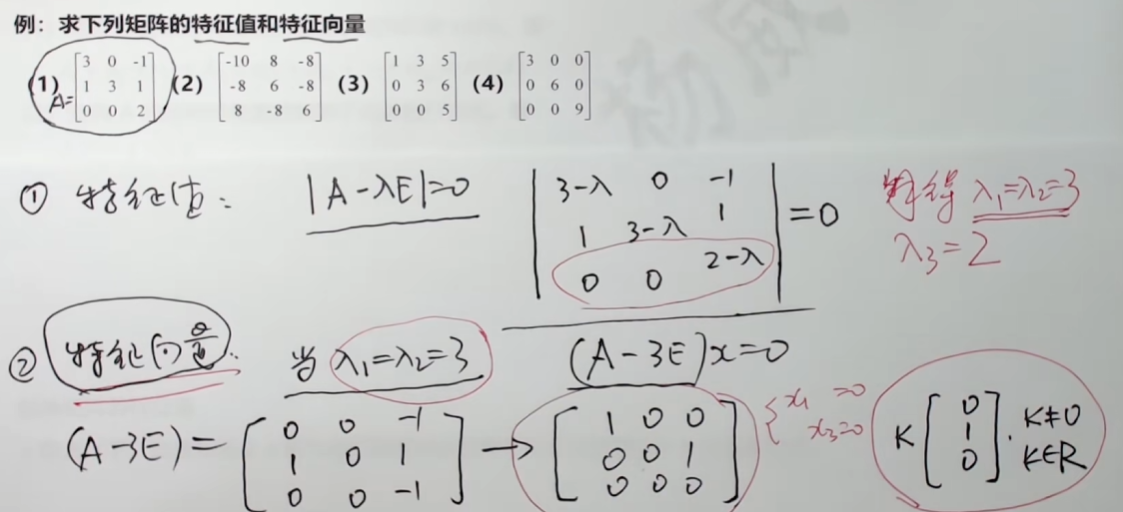 例：求下列矩阵的特征值和特征向量
(1) A= [3 0 -1; 1 3 1; 0 0 2] (2) [-10 8 -8; -8 6 -8; 8 -8 6] (3) [1 3 5; 0 3 6; 0 0 5] (4) [3 0 0; 0 6 0; 0 0 9]
① 特征值： |A-λE|=0 |3-λ 0 -1; 1 3-λ 1; 0 0 2-λ| =0 解得 λ₁=λ₂=3
λ₃=2
② 特征向量. 当 λ₁=λ₂=3 (A-3E)x=0
(A-3E)= [0 0 -1; 1 0 1; 0 0 -1] → [1 0 0; 0 0 1; 0 0 0] { x₁=0 x₃=0 K [0; 1; 0]. K≠0 K∈R